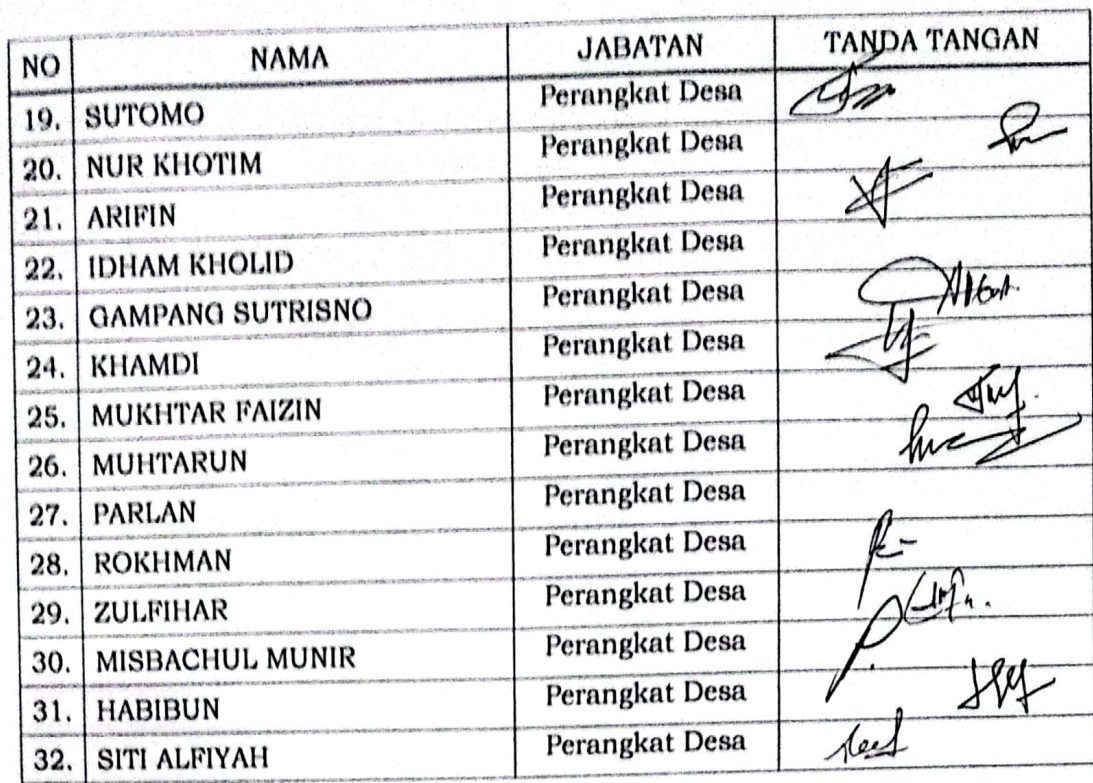 NO NAMA JABATAN TANDA TANGAN
19. SUTOMO Perangkat Desa
20. NUR KHOTIM Perangkat Desa
21. ARIFIN Perangkat Desa
22. IDHAM KHOLID Perangkat Desa
23. GAMPANG SUTRISNO Perangkat Desa
24. KHAMDI Perangkat Desa
25. MUKHTAR FAIZIN Perangkat Desa
26. MUHTARUN Perangkat Desa
27. PARLAN Perangkat Desa
28. ROKHMAN Perangkat Desa
29. ZULFIHAR Perangkat Desa
30. MISBACHUL MUNIR Perangkat Desa
31. HABIBUN Perangkat Desa
32. SITI ALFIYAH Perangkat Desa